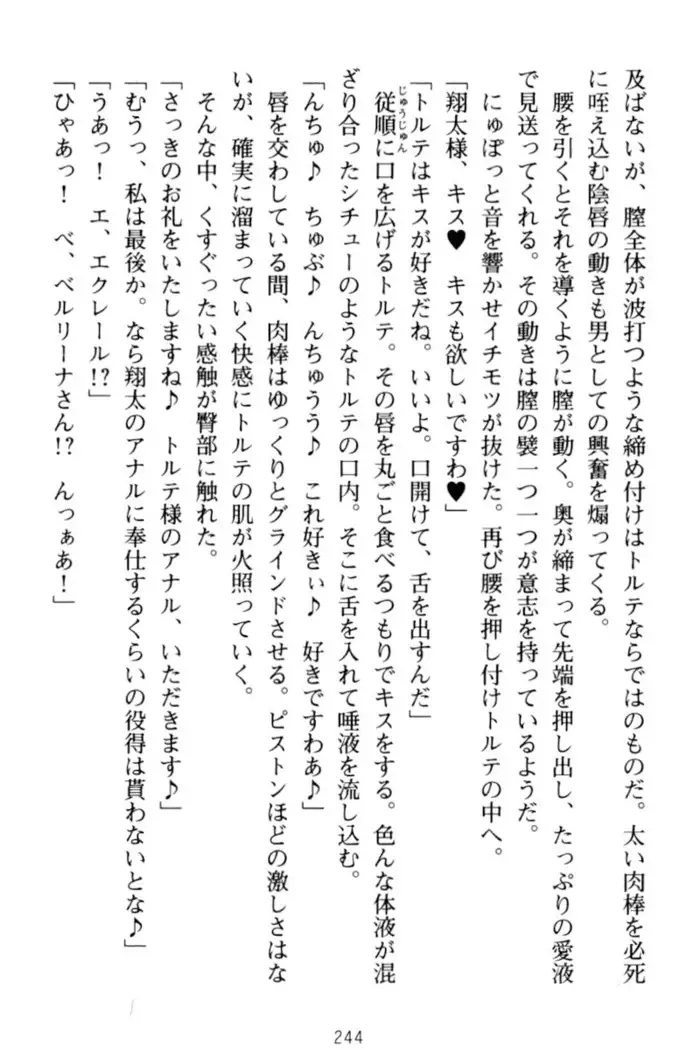 及ばないが、膣全体が波打つような締め付けはトルテならではのものだ。太い肉棒を必死
に咥え込む陰唇の動きも男としての興奮を煽ってくる。
腰を引くとそれを導くように膣が動く。奥が締まって先端を押し出し、たっぷりの愛液
で見送ってくれる。その動きは膣の襞一つ一つが意志を持っているようだ。
にゅぽっと音を響かせイチモツが抜けた。再び腰を押し付けトルテの中へ。
「翔太様、キス♥　キスも欲しいですわ♥」
「トルテはキスが好きだね。いいよ。口開けて、舌を出すんだ」
従順じゅうじゅんに口を広げるトルテ。その唇を丸ごと食べるつもりでキスをする。色んな体液が混
ざり合ったシチューのようなトルテの口内。そこに舌を入れて唾液を流し込む。
「んちゅ♪　ちゅぶ♪　んちゅうう♪　これ好きぃ♪　好きですわぁ♪」
唇を交わしている間、肉棒はゆっくりとグラインドさせる。ピストンほどの激しさはな
いが、確実に溜まっていく快感にトルテの肌が火照っていく。
そんな中、くすぐったい感触が臀部に触れた。
「さっきのお礼をいたしますね♪　トルテ様のアナル、いただきます♪」
「むうっ、私は最後か。なら翔太のアナルに奉仕するくらいの役得は貰わないとな♪」
「うあっ！　エ、エクレール!?」
「ひゃあっ！　べ、ベルリーナさん!?　んっぁあ！」
244